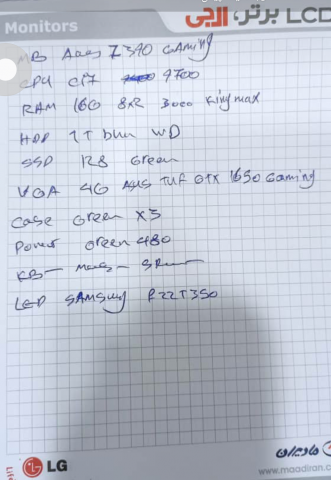 LCD برتر، الجی
Monitors
MB Asus Z390 GAming
CPU Ci7 9700
RAM 16G 8x2 3000 Kingmax
HDD 1T blue WD
SSD 128 Green
VGA 4G ASUS TUF GTX 1650 Gaming
Case Green X3
Power Green 480
KB - Mous -
LED SAMSung F22T350
مادیران
LG
www.maadiran.co